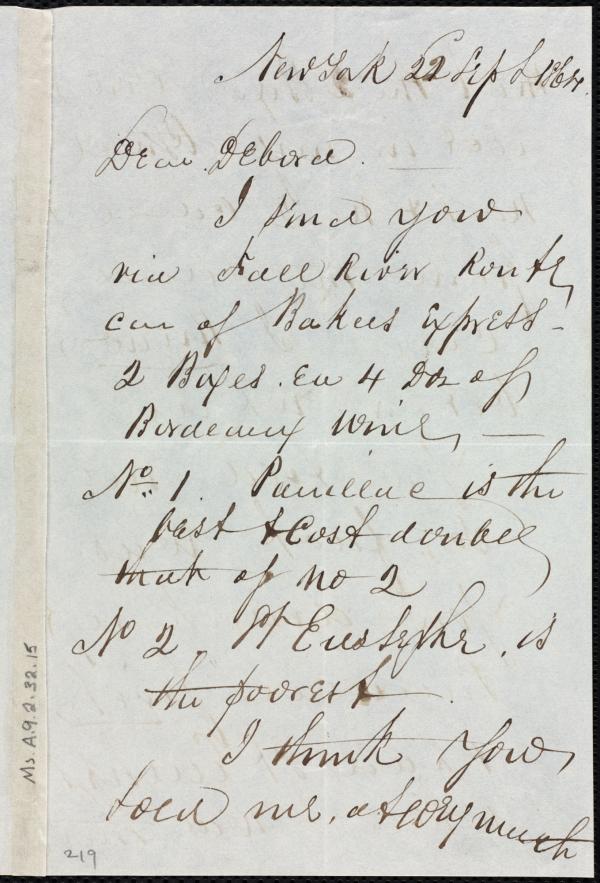 New York 22 Sept 1864.
Dear Debora.
I send you
via Fall River Route,
car of Bakers Express -
2 Boxes. Ea 4 Doz of
Bordeaux Wine, —
No 1. Pauillac is the
best & Cost double
that of no 2
No 2. St Eustephe. is
the poorest.
I think you,
told me, much
Ms. A.9.2.32.15
219